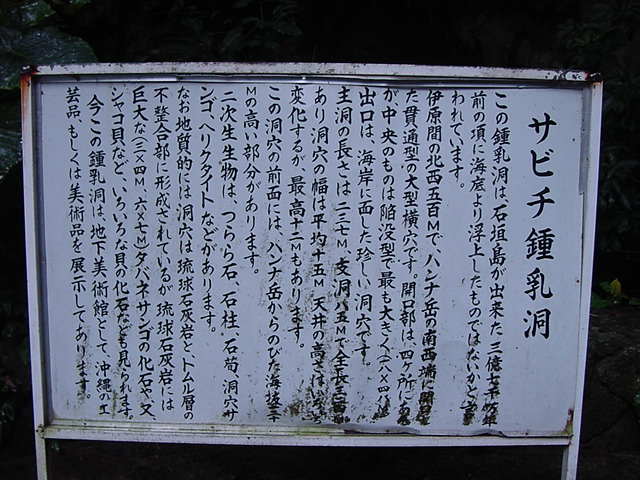 サビチ鍾乳洞
この鍾乳洞は、石垣島が出来た三億七千
前の頃に海底より浮上したものではないかと
われています。
伊原間の北西五百Mで、ハンナ岳の南西端に開
た貫通型の大型横穴です。開口部は、四ヶ所に
が中央のものは陥没型で最も大きく
出口は、海岸に面した珍しい洞穴です。
主洞の長さは二三七M、支洞八五Mで全長
あり洞穴の幅は平均十五M、天井の高さは
変化するが、最高十二Mもあります。
この洞穴の前面には、ハンナ岳からのびた海抜二十
Mの高い部分があります。
二次生生物は、つらら石、石柱、石筍、洞穴サ
ンゴ、ヘリクタイトなどがあります。
なお地質的には洞穴は琉球石灰岩と、トムル層の
不整合部に形成されているが琉球石灰岩には
巨大な(三×四M、六×七M)タバネサンゴの化石や、又
シャコ貝など、いろいろな貝の化石なども見られます。
今この鍾乳洞は、地下美術館として、沖縄の工
芸品、もしくは美術品を展示してあります。